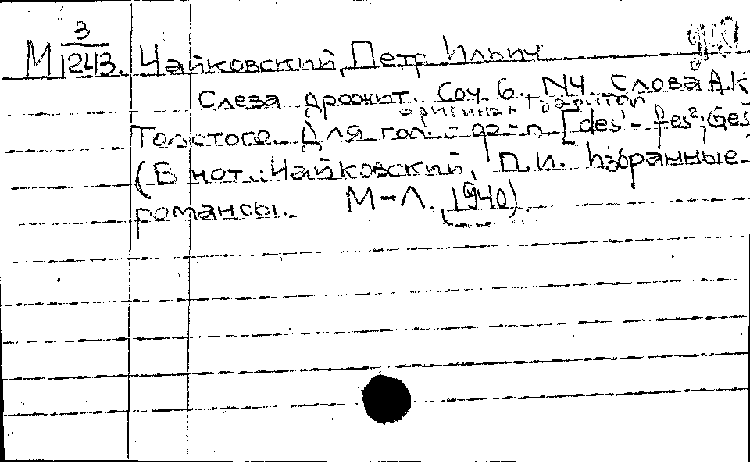 М 3/1243. Чайковский, Петр Ильич
Слеза дрожит. Соч. 6. N4. Слова А.К.
оригинал
Толстого. Для гол. с ф-п. [des¹ - fes²; Ges
(В нот.: Чайковский, П.И. Избранные
романсы. М-Л. 1940)